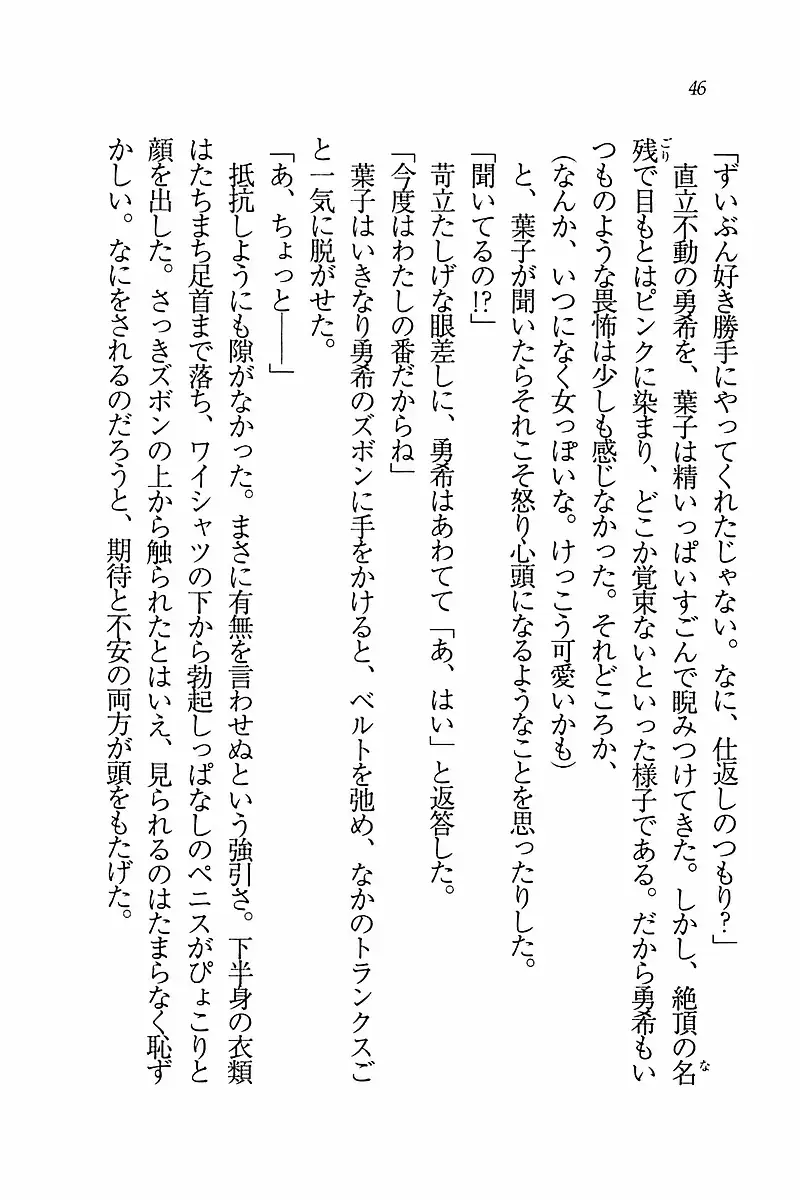 46
「ずいぶん好き勝手にやってくれたじゃない。なに、仕返しのつもり？」
　直立不動の勇希を、葉子は精いっぱいすごんで睨みつけてきた。しかし、絶頂の名な
残ごりで目もとはピンクに染まり、どこか覚束ないといった様子である。だから勇希もい
つものような畏怖は少しも感じなかった。それどころか、
（なんか、いつになく女っぽいな。けっこう可愛いかも）
　と、葉子が聞いたらそれこそ怒り心頭になるようなことを思ったりした。
「聞いてるの!?」
　苛立たしげな眼差しに、勇希はあわてて「あ、はい」と返答した。
「今度はわたしの番だからね」
　葉子はいきなり勇希のズボンに手をかけると、ベルトを弛め、なかのトランクスご
と一気に脱がせた。
「あ、ちょっと――」
　抵抗しようにも隙がなかった。まさに有無を言わせぬという強引さ。下半身の衣類
はたちまち足首まで落ち、ワイシャツの下から勃起しっぱなしのペニスがぴょこりと
顔を出した。さっきズボンの上から触られたとはいえ、見られるのはたまらなく恥ず
かしい。なにをされるのだろうと、期待と不安の両方が頭をもたげた。